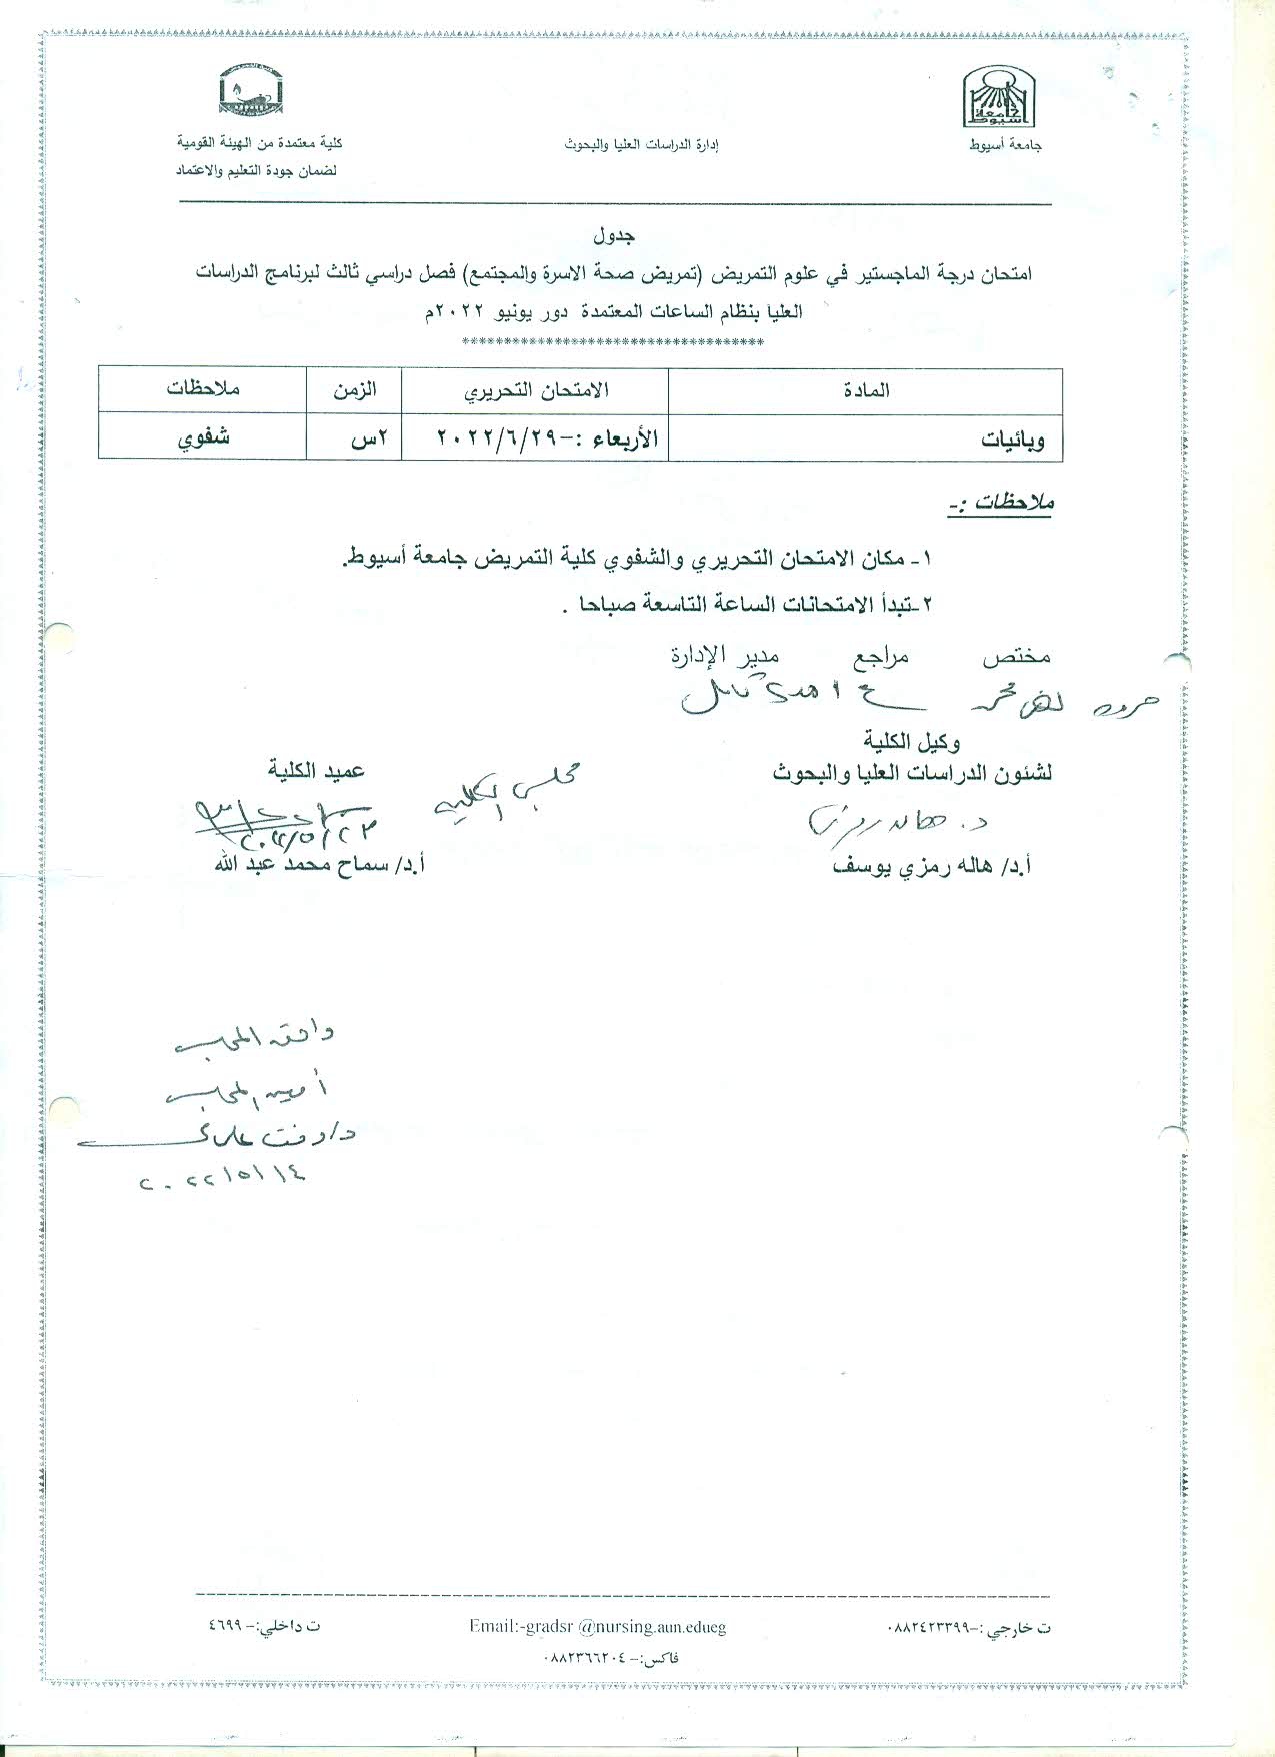 جامعة أسيوط
إدارة الدراسات العليا والبحوث
كلية معتمدة من الهيئة القومية
لضمان جودة التعليم والاعتماد
جدول
امتحان درجة الماجستير في علوم التمريض (تمريض صحة الاسرة والمجتمع) فصل دراسي ثالث لبرنامج الدراسات
العليا بنظام الساعات المعتمدة دور يونيو ٢٠٢٢م
*********************************
المادة الامتحان التحريري الزمن ملاحظات
وبائيات الأربعاء :-٢٠٢٢/٦/٢٩ ٢س شفوي
ملاحظات :-
١- مكان الامتحان التحريري والشفوي كلية التمريض جامعة أسيوط.
٢-تبدأ الامتحانات الساعة التاسعة صباحا .
مختص مراجع مدير الإدارة
وكيل الكلية
لشئون الدراسات العليا والبحوث
عميد الكلية
مجلس الكلية
د. هاله رمزي
أ.د/ هاله رمزي يوسف
أ.د/ سماح محمد عبد الله
وافق المجلس
أمين المجلس
٢٠٢٢/٥/١٤
ت خارجي :-٠٨٨٢٤٢٣٣٩٩
Email:-gradsr @nursing.aun.edueg
ت داخلي:- ٤٦٩٩
فاكس:- ٠٨٨٢٣٦٦٢٠٤